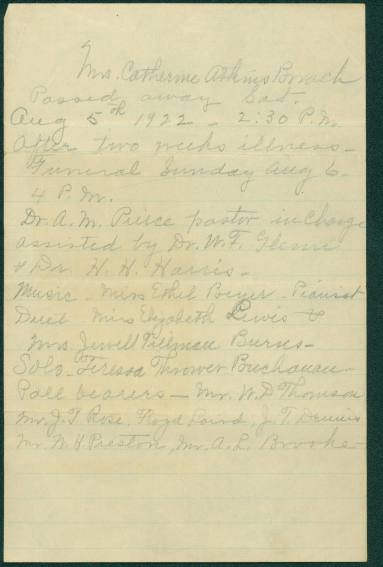 Mrs. Catherine Atkins Broach
Passed away Sat.
Aug 5th 1922 - 2:30 P.M.
After two weeks illness -
Funeral Sunday Aug 6 -
4 P.M.
Dr. A. M. Pierce pastor in charge
assisted by Dr. W. F. Glenn
& Dr. H. H. Harris -
Music - Miss Ethel Beyer - Pianist
Duet Miss Elizabeth Lewis &
Mrs. Jewell Tillman Burns -
Solo - Teressa Thrower Buchanan -
Pall bearers - Mr. W. D. Thomson
Mr. J. T. Rose, Floyd J. T.
Mr. N. H. Preston, Mr. A. L. Brooke -